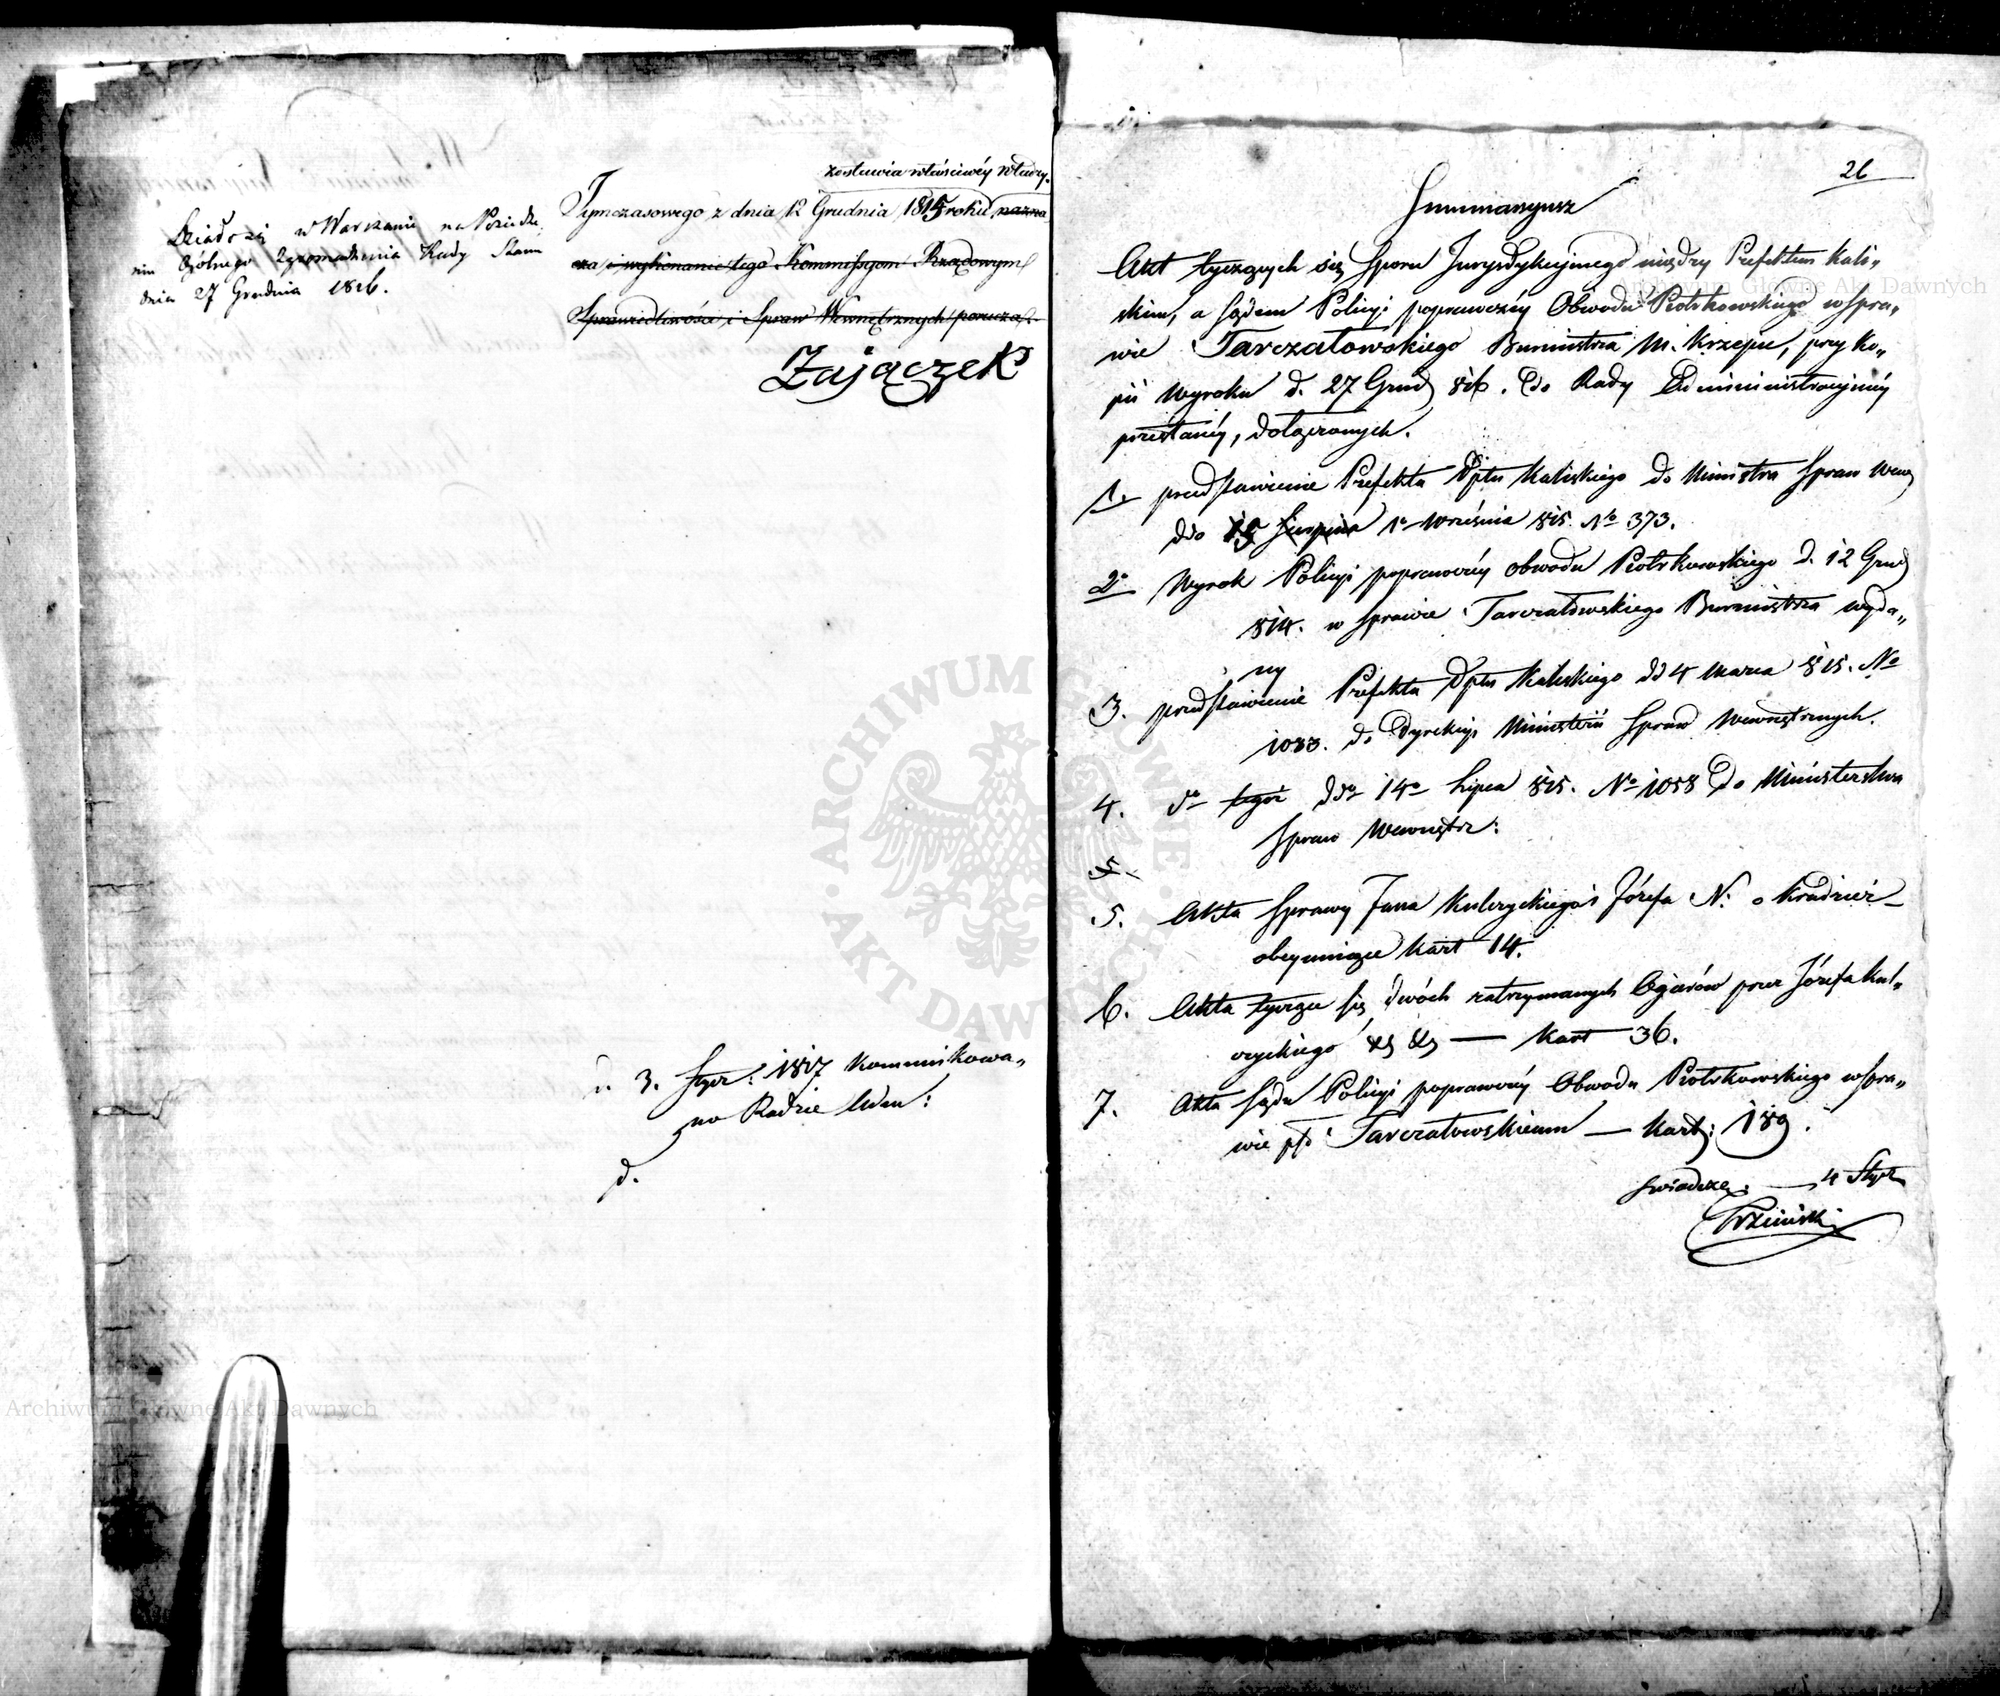 zostawia właściwéy Władzy.
Tymczasowego z dnia 12 Grudnia 1815 roku nazna
cza i wykonanie tego Kommissyom Rządowym
Sprawiedliwości i Spraw Wewnętrznych porucza.
Zajączek
Działo się w Warszawie na Posiedze
niu Ogólnego Zgromadzenia Rady Stanu
dnia 27 Grudnia 1816.
d. 3. Stycz: 1817 kommunikowa„
no Radzie Adm:
d.
26
Summaryusz
Akt tyczących się Sporu Jurysdykcyjnego między Prefektem Kali„
skim, a Sądem Policyi poprawczéy Obwodu Piotrkowskiego w Spra„
wie Tarczałowskiego Burmistrza M. Krzepic, przy ko„
pii Wyroku d. 27 Grud 816. do Rady Administracyjnéy
przesłanéy, dołączonych.
1. przedstawienie Prefekta Dptu Kaliskiego do Ministra Spraw Wew
ddo 15 Sierpnia 1º Września 815. Nº 373.
2º Wyrok Policyi poprawczéy obwodu Piotrkowskiego d. 12 Grud
814. w sprawie Tarczałowskiego Burmistrza wyda„
ny
3. przedstawienie Prefekta Dptu Kaliskiego dd 4 Marca 815. Nº
1033. do Dyrekcyi Minister Spraw Wewnętrznych.
4. dº tegoż ddº 14º Lipca 815. Nº 1058 do Ministerstwa
Spraw Wewnętrz:
5.
5. Akta Sprawy Jana Kulczyckiego i Józefa N: o kradzież
obeymujące kart 14.
6. Akta tyczące się dwóch zatrzymanych Ogarów przez Józefa Kul„
czyckiego — kart 36.
7. Akta Sądu Policyi poprawczéy Obwodu Piotrkowskiego w Spra„
wie Tarczałowskiemu — kart: 189.
Świadczę. — 4 Stycz
ARCHIWUM GŁÓWNE AKT DAWNYCH
Archiwum Główne Akt Dawnych
Archiwum Główne Akt Dawnych